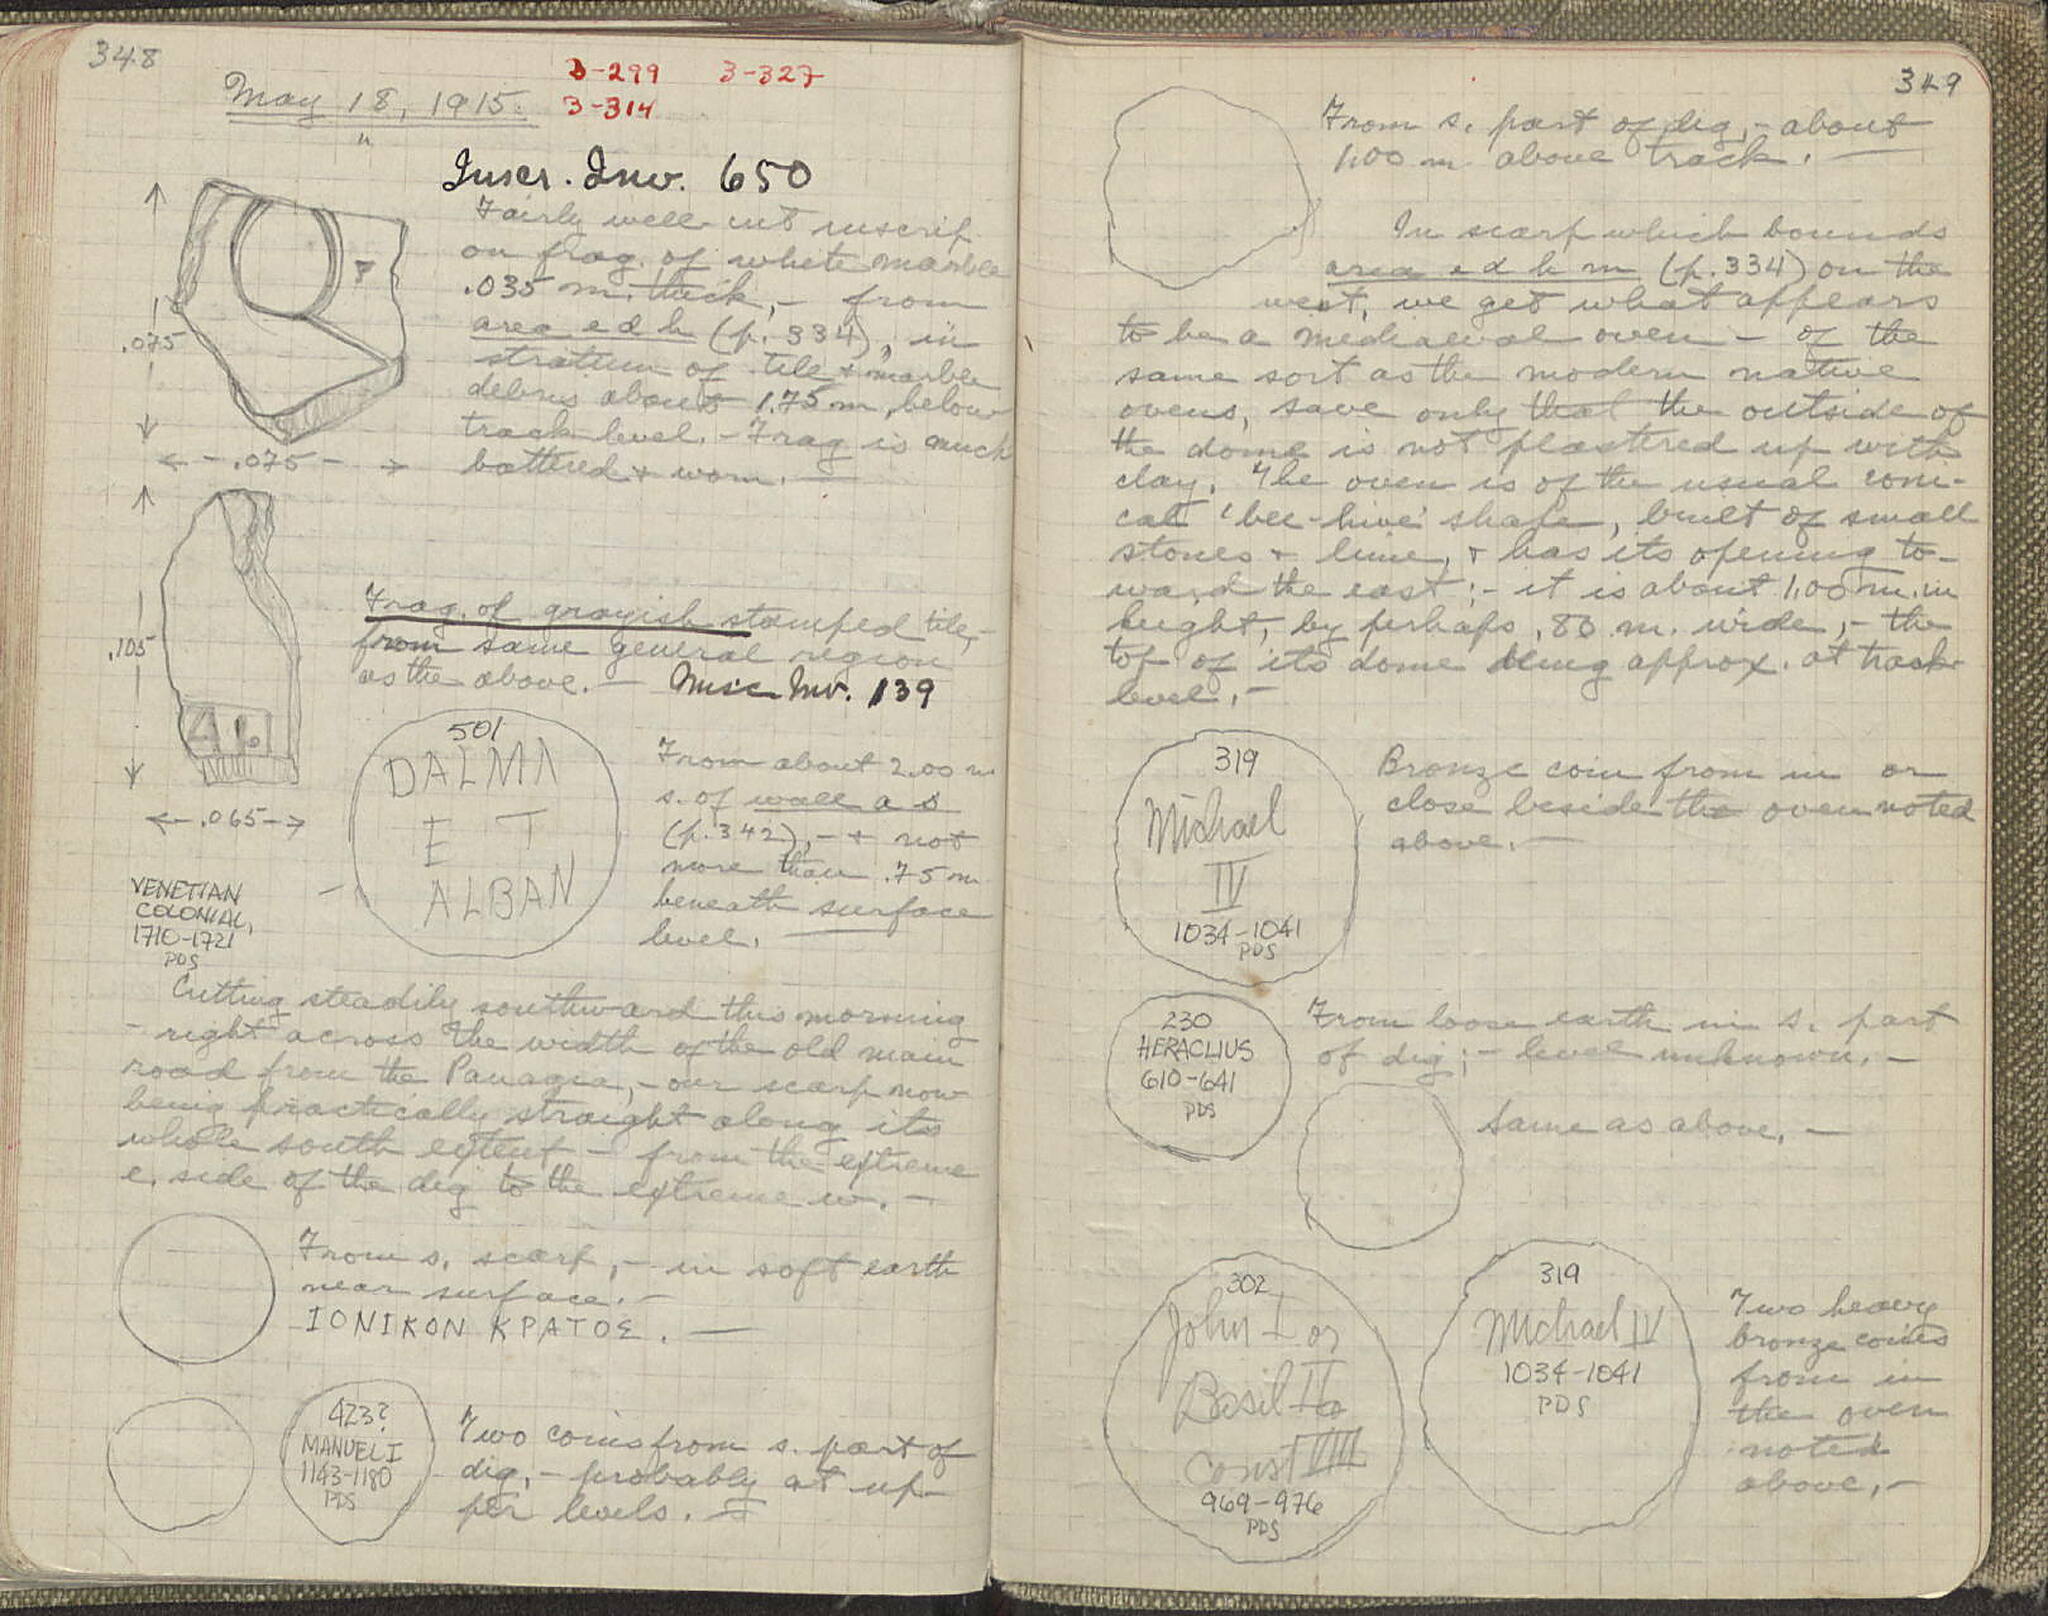 348
May 18, 1915.
"
3-299 3-327
3-314
Inscr. Inv. 650
Fairly well cut inscrip.
on frag. of white marble
.035 m. thick, - from
area e d h (p. 334), in
stratum of tile + marble
debris about 1.75 m. below
track level. - Frag is much
battered + worn. —
.075
.075
.105
.065
Frag. of grayish stamped tile, -
from same general region
as the above. — Misc Inv. 139
501
DALMA
E T
ALBAN
From about 2.00 m
s. of wall a
(p. 342), - + not
more than .75 m
beneath surface
level.
VENETIAN
COLONIAL,
1710-1721
PDS
Cutting steadily southward this morning
- right across the width of the old main
road from the Panagia, - our scarp now
being practically straight along its
whole south extent - from the extreme
e. side of the dig to the extreme w. —
From s. scarf, - in soft earth
near surface. -
ΙΟΝΙΚΟΝ ΚΡΑΤΟΣ. —
423?
MANUEL I
1143-1180
PDS
Two coins from s. part of
dig, - probably at up-
per levels. —
349
From s. part of dig, - about
1.00 m. above track. —
In scarp which bounds
area e d h m (p. 334) on the
west, we get what appears
to be a mediaeval oven - of the
same sort as the modern native
ovens, save only that the outside of
the dome is not plastered up with
clay. The oven is of the usual coni-
cal 'bee-hive' shape, built of small
stones + lime, + has its opening to-
ward the east; - it is about 1.00 m. in
height, by perhaps .80 m. wide, - the
top of its dome being approx. at track
level. -
319
Michael
IV
1034-1041
PDS
Bronze coin from in or
close beside the oven noted
above. —
230
HERACLIUS
610-641
PDS
From loose earth in s. part
of dig; - level unknown. -
Same as above. —
302
John I or
Basil II &
Const VIII
969-976
PDS
319
Michael IV
1034-1041
PDS
Two heavy
bronze coins
from in
the oven
noted
above. -